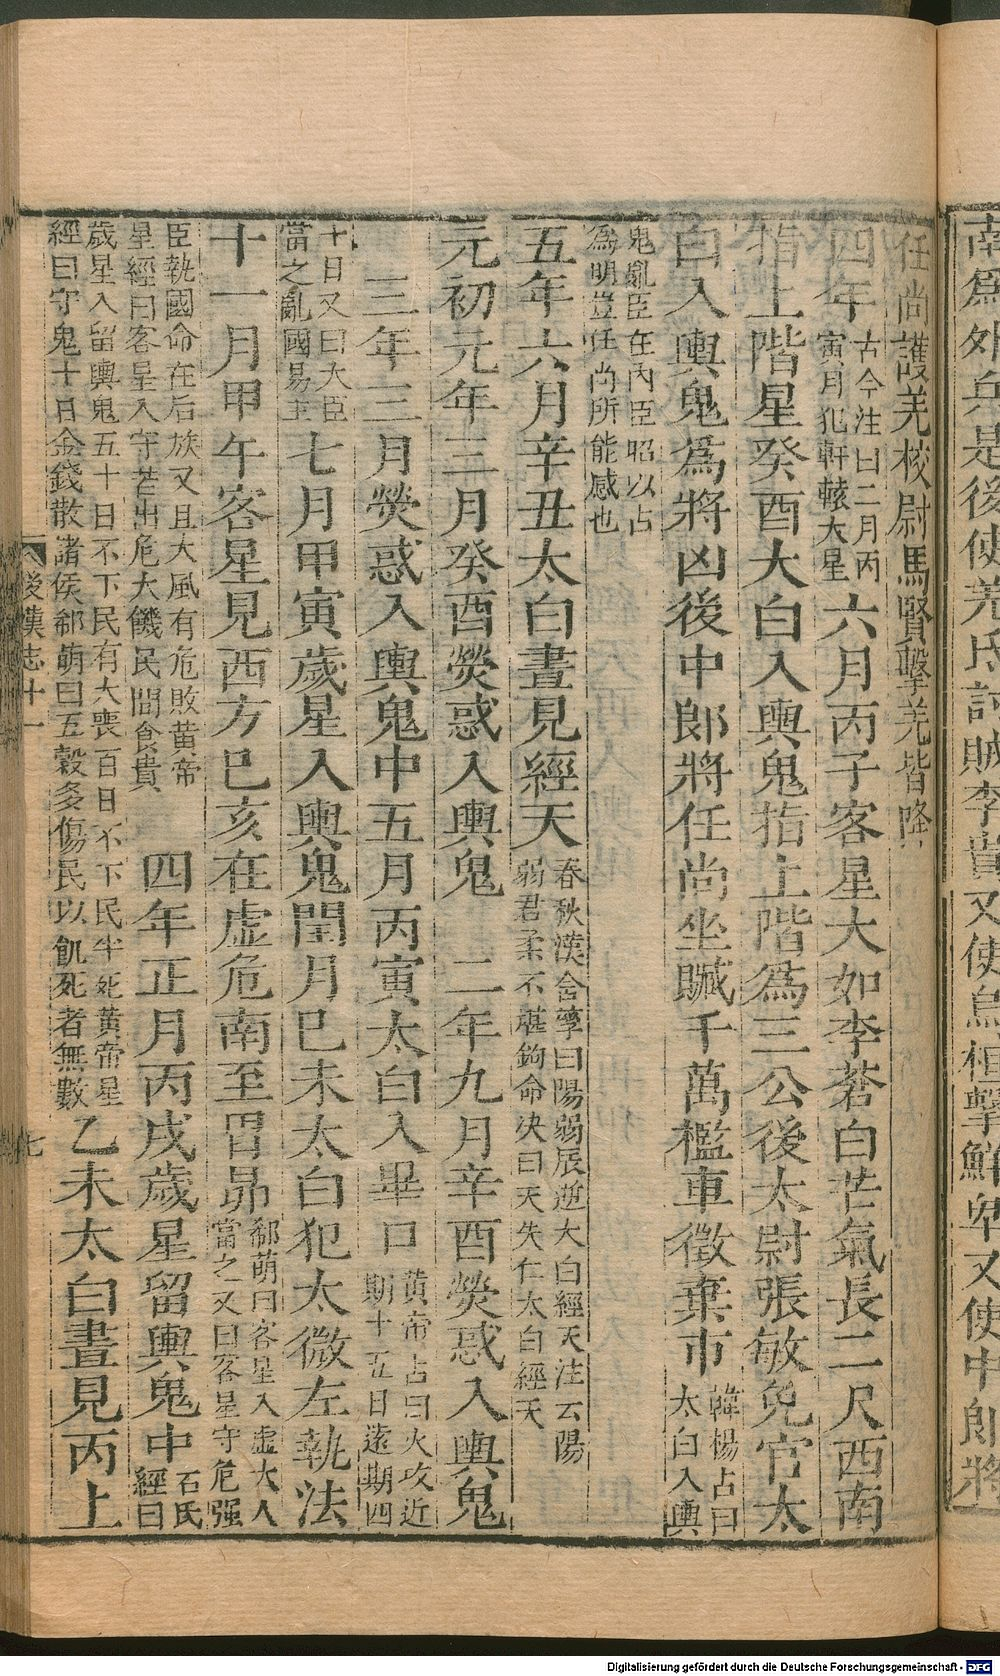 南爲外兵是後使羌氐討賊李貴又使烏桓擊鮮卑又使中郎將
任尚護羌校尉馬賢擊羌皆降
四年古今注曰二月丙寅月犯軒轅大星六月丙子客星大如李蒼白芒氣長二尺西南
指上階星癸酉太白入輿鬼指上階爲三公後太尉張敏免官太
白入輿鬼爲將凶後中郎將任尚坐贓千萬檻車徵棄市韓楊占曰太白入輿
鬼亂臣在內臣昭以占爲明豈任尚所能感也
五年六月辛丑太白晝見經天春秋漢含孳曰陽弱辰逆太白經天注云陽弱君柔不堪鉤命決曰天失仁太白經天
元初元年三月癸酉熒惑入輿鬼 二年九月辛酉熒惑入輿鬼
三年三月熒惑入輿鬼中五月丙寅太白入畢口黃帝占曰火攻近期十五日遠期四
十日又曰大臣當之亂國易主七月甲寅歲星入輿鬼閏月巳未太白犯太微左執法
十一月甲午客星見西方巳亥在虛危南至胃昴郗萌曰客星入虛大人當之又曰客星守危强
臣執國命在后族又且大風有危敗黃帝星經曰客星入守芒出危大饑民間食貴 四年正月丙戌歲星留輿鬼中石氏經曰
歲星入留輿鬼五十日不下民有大喪百日不下民半死黃帝星經曰守鬼十日金錢散諸侯郗萌曰五穀多傷民以飢死者無數乙未太白晝見丙上
後漢志十一
七
Digitalisierung gefördert durch die Deutsche Forschungsgemeinschaft - DFG